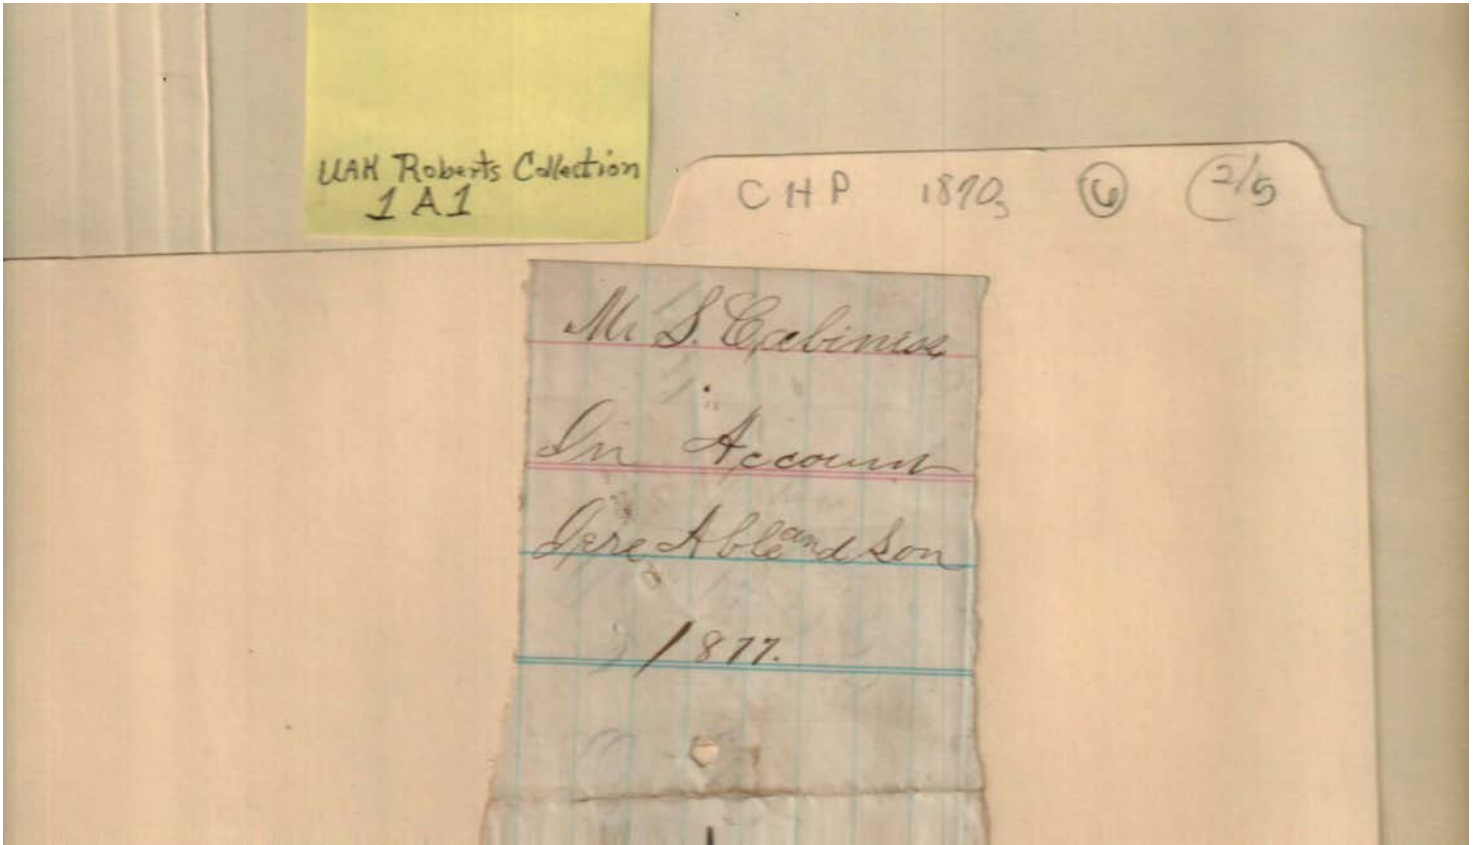 UAH Roberts Collection
1A1
CHP 1870s 6 (2/5
Mr S. Cabiness
In Account
Jere Able and Son
1877.